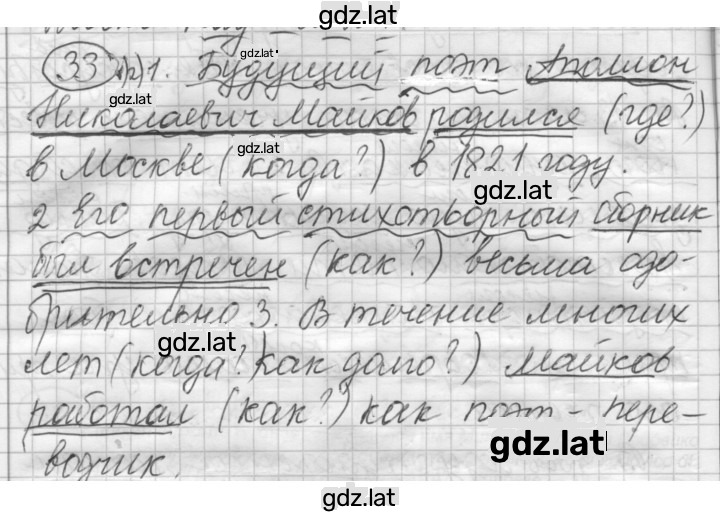 gdz.lat
33 1. Будущий поэт Аполлон
gdz.lat
gdz.lat
Николаевич Майков родился (где?)
gdz.lat
в Москве (когда?) в 1821 году.
gdz.lat
2 Его первый стихотворный сборник
был встречен (как?) весьма одо-
брительно 3. В течение многих
gdz.lat
лет (когда? как долго?) Майков
работал (как?) как поэт - пере-
gdz.lat
водчик.
gdz.lat